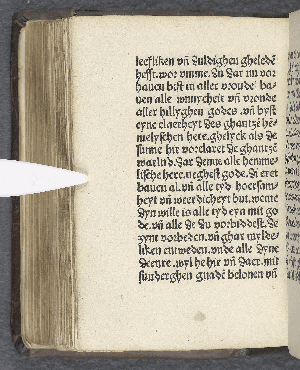 leefliken vñ duldighen gheledē
hefft. vor vmme. Du dar nu vor
hauen bist in aller vroude ba-
uen alle wnnycheit vñ vronde
aller hillyghen godes. vñ byst
eyne claerheyt des ghantzē he-
melyschen here. ghelyck als de
sunne hir vorclaret de ghantzē
warlñd. Dar denne alle hemme-
lische here. neghest gode. Di eret
bauen al. vñ alle tyd hoersam-
heyt vñ weerdicheyt but. wente
dyn wille is alle tyd eyn mit go
de. vñ alle de du vorbiddest. De
zynt vorbeden. vñ ghar mylde-
liken entweden. vnde alle dyne
deenre. wyl he hir vñ daer. mit
sunderghen gnadē belonen vñ